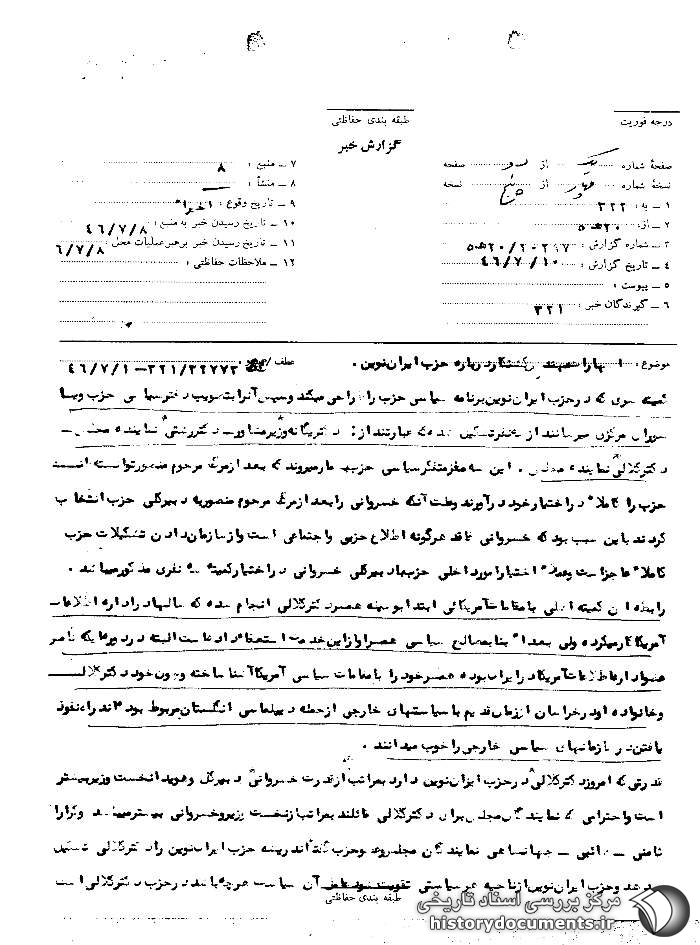 درجه فوریت
طبقه بندی حفاظتی
گزارش خبر
صفحهٔ شماره یک از دو صفحه
نسخهٔ شماره چهار از پنج نسخه
۱ ـ به : ۳۲۲
۲ ـ از : ۲۰ھ۵
۳ ـ شماره گزارش : ۲۰/۲۰۲۹۷ھ۵
۴ ـ تاریخ گزارش : ۴۶/۷/۱۰
۵ ـ پیوست :
۶ ـ گیرندگان خبر : ۳۲۱
۷ ـ منبع : ۸
۸ ـ منشأ :
۹ ـ تاریخ وقوع : اخیرا"
۱۰ ـ تاریخ رسیدن خبر به منبع : ۴۶/۷/۸
۱۱ ـ تاریخ رسیدن خبر برهبر عملیات محل : ۶/۷/۸
۱۲ ـ ملاحظات حفاظتی :
موضوع : درباره حزب ایران نوین .
عطف ۳۲۱/۳۲۷۷۳ – ۴۶/۷/۱
کمیته سری که در حزب ایران نوین برنامه سیاسی حزب را طراحی میکند وسپس آنرا بتصویب دفتر سیاسی حزب ویا
شورای مرکزی میرسانند از سه نفر تشکیل شده که عبارتند از : دکتر یگانه وزیر مشاور ــ دکتر رشتی نماینده مجلس ــ
دکتر کلالی نماینده مجلس . این سه مغز متفکر سیاسی حزب بشمار میروند که بعد از مرگ مرحوم منصور توانسته است
حزب را کاملا" در اختیار خود در آورند وعلت آنکه خسروانی را بعد از مرگ مرحوم منصور به دبیرکلی حزب انتخاب
کردند باین سبب بود که خسروانی فاقد هرگونه اطلاع حزبی واجتماعی است واز سازمان دادن تشکیلات حزب
کاملا" عاجز است وعملا" اختیار امور داخلی حزب با دبیرکلی خسروانی در اختیار کمیته سه نفری مذکور میباشد .
رابطه این کمیته اصلی با مقامات آمریکائی ابتدا بوسیله همسر دکتر کلالی انجام شده که سالها در اداره اطلاعات
آمریکا کار میکرده ولی بعدا" بنا بمصالح سیاسی همسرا و از این خدمت استعفا داده است البته در دوره ایکه
عضو اداره اطلاعات آمریکا در ایران بوده همسر خود را با مقامات سیاسی آمریکا آشنا ساخته وچون خود دکتر کلالی
وخانواده او در خراسان از زمان قدیم با سیاستهای خارجی از جمله دیپلماسی انگلستان مربوط بوده اند راه نفوذ
یافتن در سازمانهای سیاسی خارجی را خوب میدانند .
قدرتی که امروز دکتر کلالی در حزب ایران نوین دارد بمراتب از قدرت خسروانی دبیرکل وهویدا نخست وزیر بیشتر
است واحترامی که نمایندگان مجلس برای دکتر کلالی قائلند بمراتب از نخست وزیر وخسروانی بیشتر میباشد
نمایندگان مجلس وعضو حزب گفته اند ریشه حزب ایران نوین را دکتر کلالی تشکیل
میدهد وحزب ایران نوین از ناحیه هر سیاستی تقویت شود عامل آن سیاست هرچه باشد در حزب دکتر کلالی است
طبقه بندی حفاظتی
مرکز بررسی اسناد تاریخی
historydocuments.ir